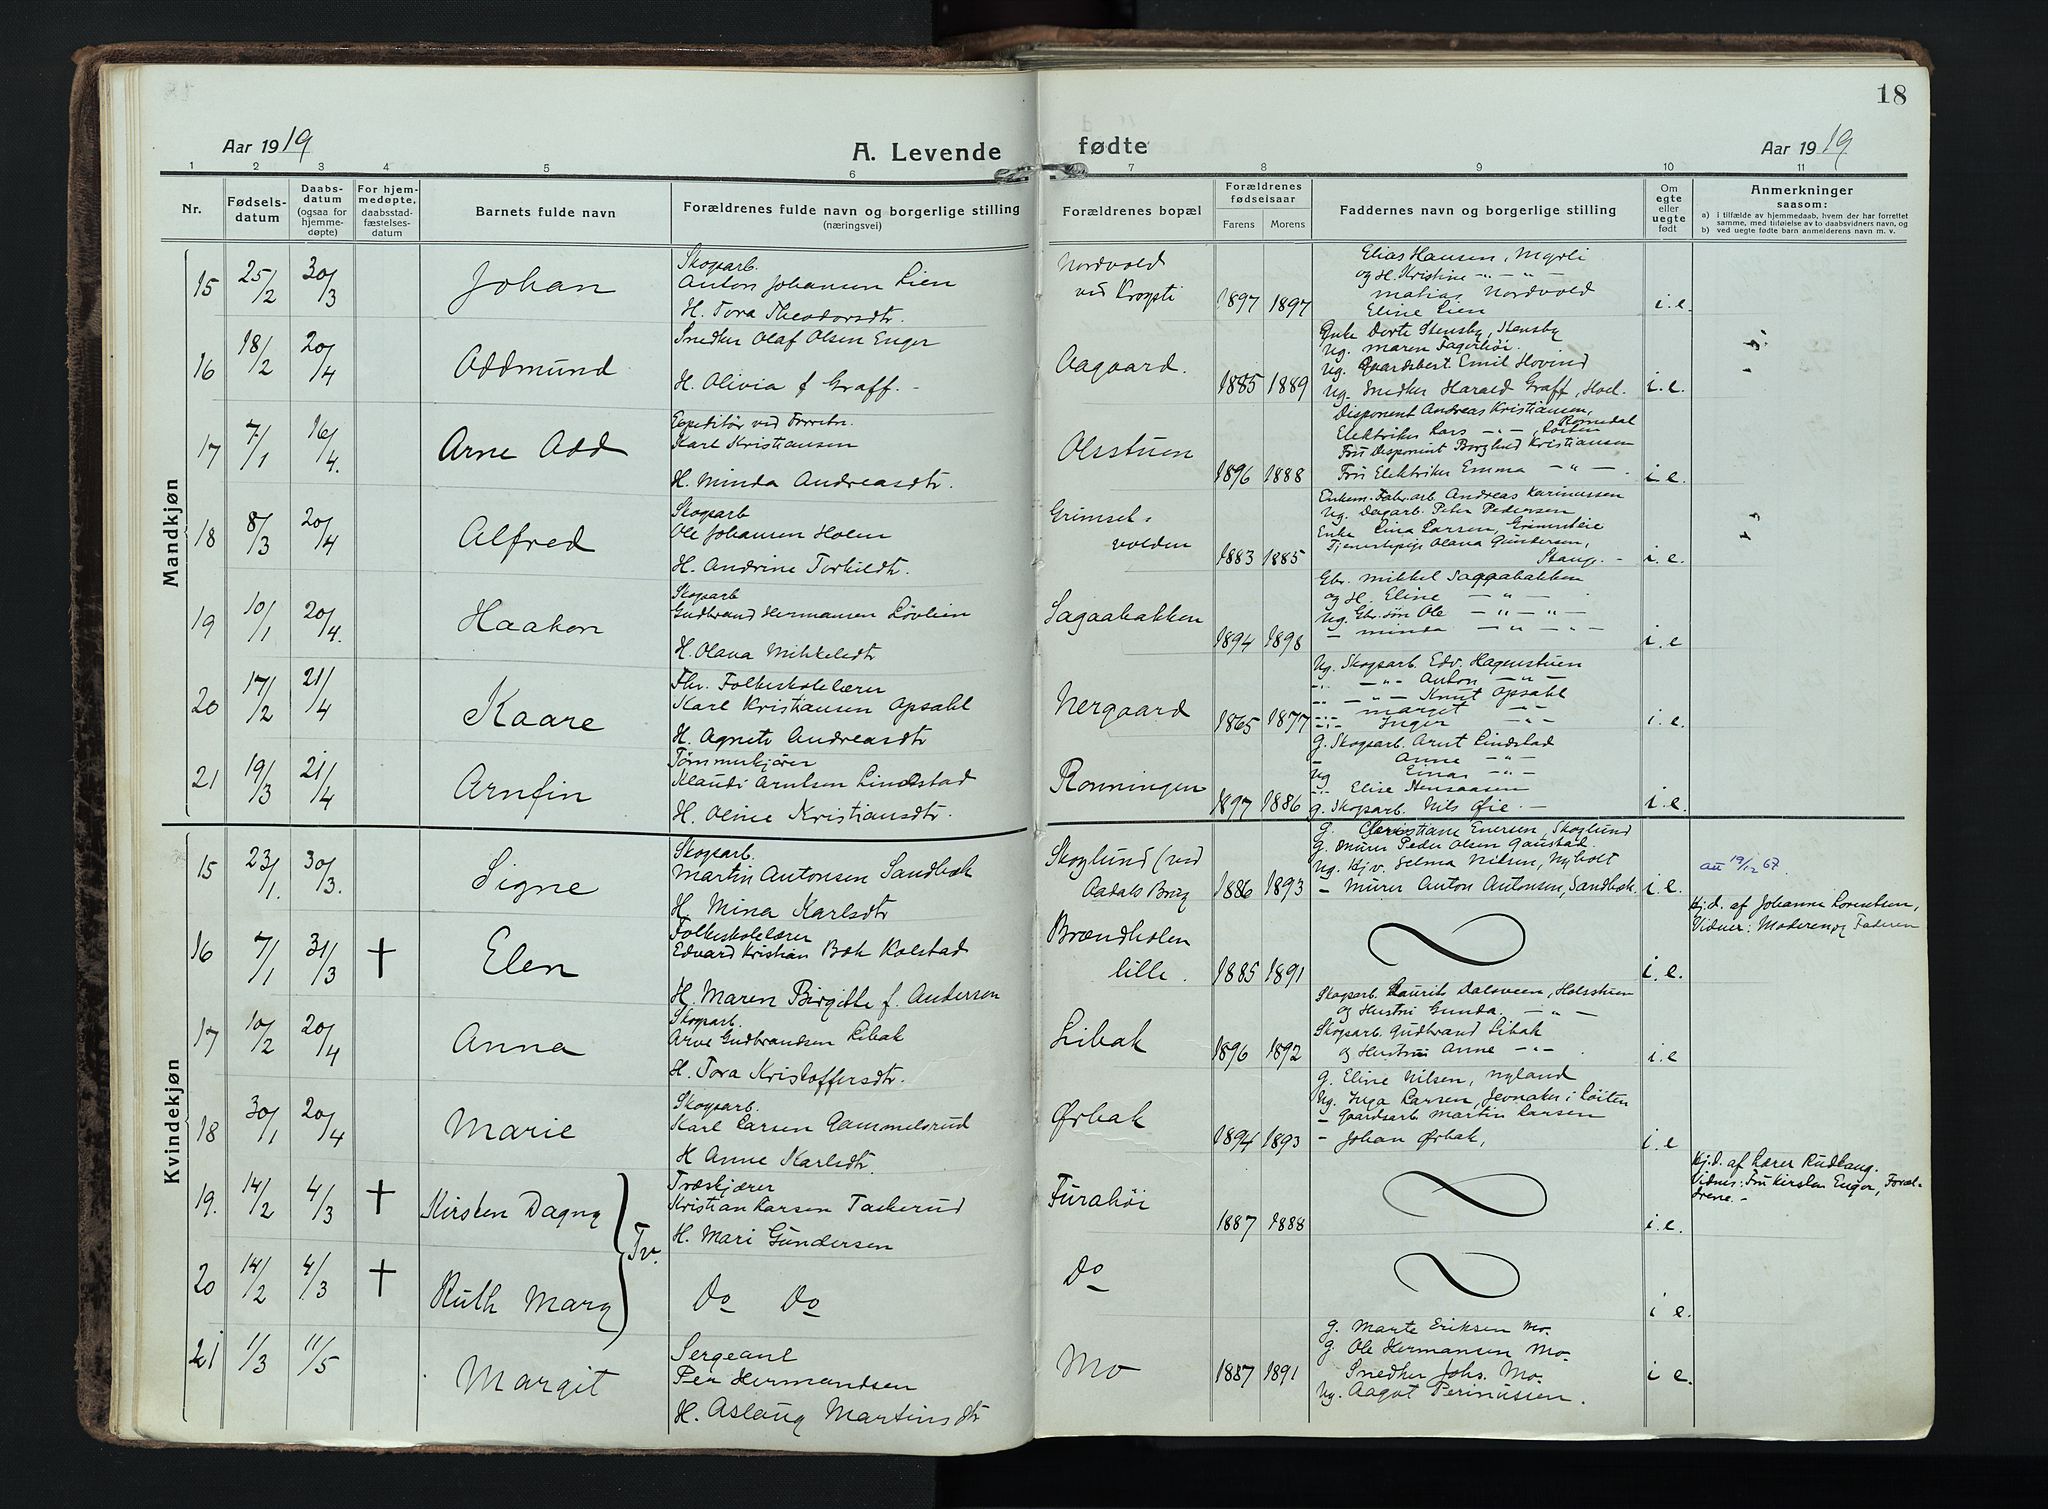 18
Aar 1919
A. Levende fødte
Aar 1919
1 2 3 4 5 6 7 8 9 10 11
Nr.
Fødselsdatum
Daabsdatum (ogsaa for hjemmedøpte)
For hjemmedøpte, daabsstadfæstelsesdatum
Barnets fulde navn
Forældrenes fulde navn og borgerlige stilling (næringsvei)
Forældrenes bopæl
Forældrenes fødselsaar
Farens Morens
Faddernes navn og borgerlige stilling
Om egte eller uegte født
Anmerkninger saasom:
a) i tilfælde av hjemmedaab, hvem der har forrettet samme, med tilføielse av to daabsvidners navn, og
b) ved uegte fødte barn anmelderens navn m. v.
Mandkjøn
15 25/2 30/3 Johan
Skogsarb.
Anton Johansen Lien
H. Tora Theodorsdtr.
Nordvold
ved Krogsti
1897 1897
Elias Hansen, Myrli
og H. Kristine -"- -"-
Matias Nordvold
Eline Lien
i.e.
16 18/2 20/4 Oddmund
Snedker Olaf Olsen Enger
H. Olivia f Graff.
Aagaard.
1885 1889
Enke Dorte Stensby, Stensby
Ug. Maren Fagerhøi
Ug. Gaardsbest. Emil Hovind
Ug. Snedker Harald Graff, Hoel.
i.e.
17 7/1 16/4. Arne Odd
Expeditør ved Forretn.
Karl Kristiansen
H. Minda Andreasdtr.
Olsstuen
1896 1888
Disponent Andreas Kristiansen, Romedal
Elektriker Lars -"-, Løiten
Fru Disponent Borghild Kristiansen
Fru Elektriker Emma -"-.
i.e.
18 8/3 20/4 Alfred
Skogsarb
Ole Johansen Holen
H. Andrine Torkildtr.
Grimset-
volden
1883 1885
Enkem. Fabr.arb. Andreas Karinussen
Ug. Dagarb. Peter Pedersen
Enke Lina Larsen, Grimseteie
Tjenestepige Olava Gundersen,
Stange.
i.e.
19 10/1 20/4. Haakon
Skogsarb
Gudbrand Hermansen Løvlien
H. Olava Mikkelsdtr
Sagaabakken
1894 1898
Gbr. Mikkel Saggabakken
og H. Eline -"-
Ug. Gbr. søn Ole -"- -"-
- Minda -"- -"-
i.e
20 17/2 21/4 Kaare
Fhv. Folkeskolelærer
Karl Kristiansen Opsahl
H. Agnete Andreasdtr
Nergaard
1865 1877
Ug. Skogsarb. Edv. Hagenstuen
-"- -"- Anton -"-
-"- -"- Knut Opsahl
-"- Marget -"-
-"- Inger -"-
i.e.
21 19/3 21/4 Arnfin
Tømmerkjører
Klaudi Arntsen Lindstad
H. Oline Kristiansdtr.
Rønningen
1897 1886
G. Skogsarb. Arnt Lindstad
- Anne -"-
Ug Einar -"-
-"- Elise Stensaasen
G. Skogsarb. Nils Øie.
i.e.
Kvindekjøn
15 23/1. 30/3. Signe
Skogsarb.
Martin Antonsen Sandbæk
H. Mina Karlsdtr
Skoglund (ved
Aadals Brug
1886 1893
G. Christiane Enersen, Skoglund
G. Murer Peder Olsen Gaustad.
Ug. Hjv. Selma Nilsen, Nyholt
- Murer Anton Antonsen, Sandbæk.
i.e.
au 19/12 67.
16 7/1 31/3 † Elen
Folkeskolelærer
Edvard Kristian Bæk Kolstad
H. Maren Birgitte f. Andersen
Brændholen
lille.
1885 1891
i.e.
Hj.d. af Johanne Lorentsen,
Vidner: Moderen og Faderen
17 10/2 20/4 Anna
Skogsarb.
Arve Gudbrandsen Libak
H. Tora Kristoffersdtr.
Libak
1896 1892
Skogsarb. Laurits Dalsveen, Holsstuen
og Hustru Gunda. -"-
Skogsarb. Gudbrand Libak
og Hustru Anne -"-.
i.e
18 30/1 20/4 Marie
Skogsarb.
Karl Larsen Gammelsrud
H Anne Karlsdtr.
Ørbak
1894 1893
G. Eline Nilsen, Nyland
Ug. Inga Larsen, Jevnaker i Løiten
- Gaardsarb Martin Larsen
- Johan Ørbak,
i.e
19. 14/2 4/3 † Kirsten Dagny
Træskjærer
Kristian Larsen Taskerud
H. Mari Gundersen
Furahøi
1887 1888
i.e.
Hj.d. af Lærer Rudlang.
Vidnes: Fru Kirsten Enger, Foræl-
drene.
Tv.
20 14/2 4/3 † Ruth Marg
Do Do
Do
i e.
21 1/3 11/5 Margit
Sergeant
Per Hermandsen
H. Aslaug Martinsdtr
Mo
1887 1891
G. Marte Eriksen Mo.
G. Ole Hermansen Mo.
Snedker Johs. Mo.
Ug. Aagot Perinussen.
i e.